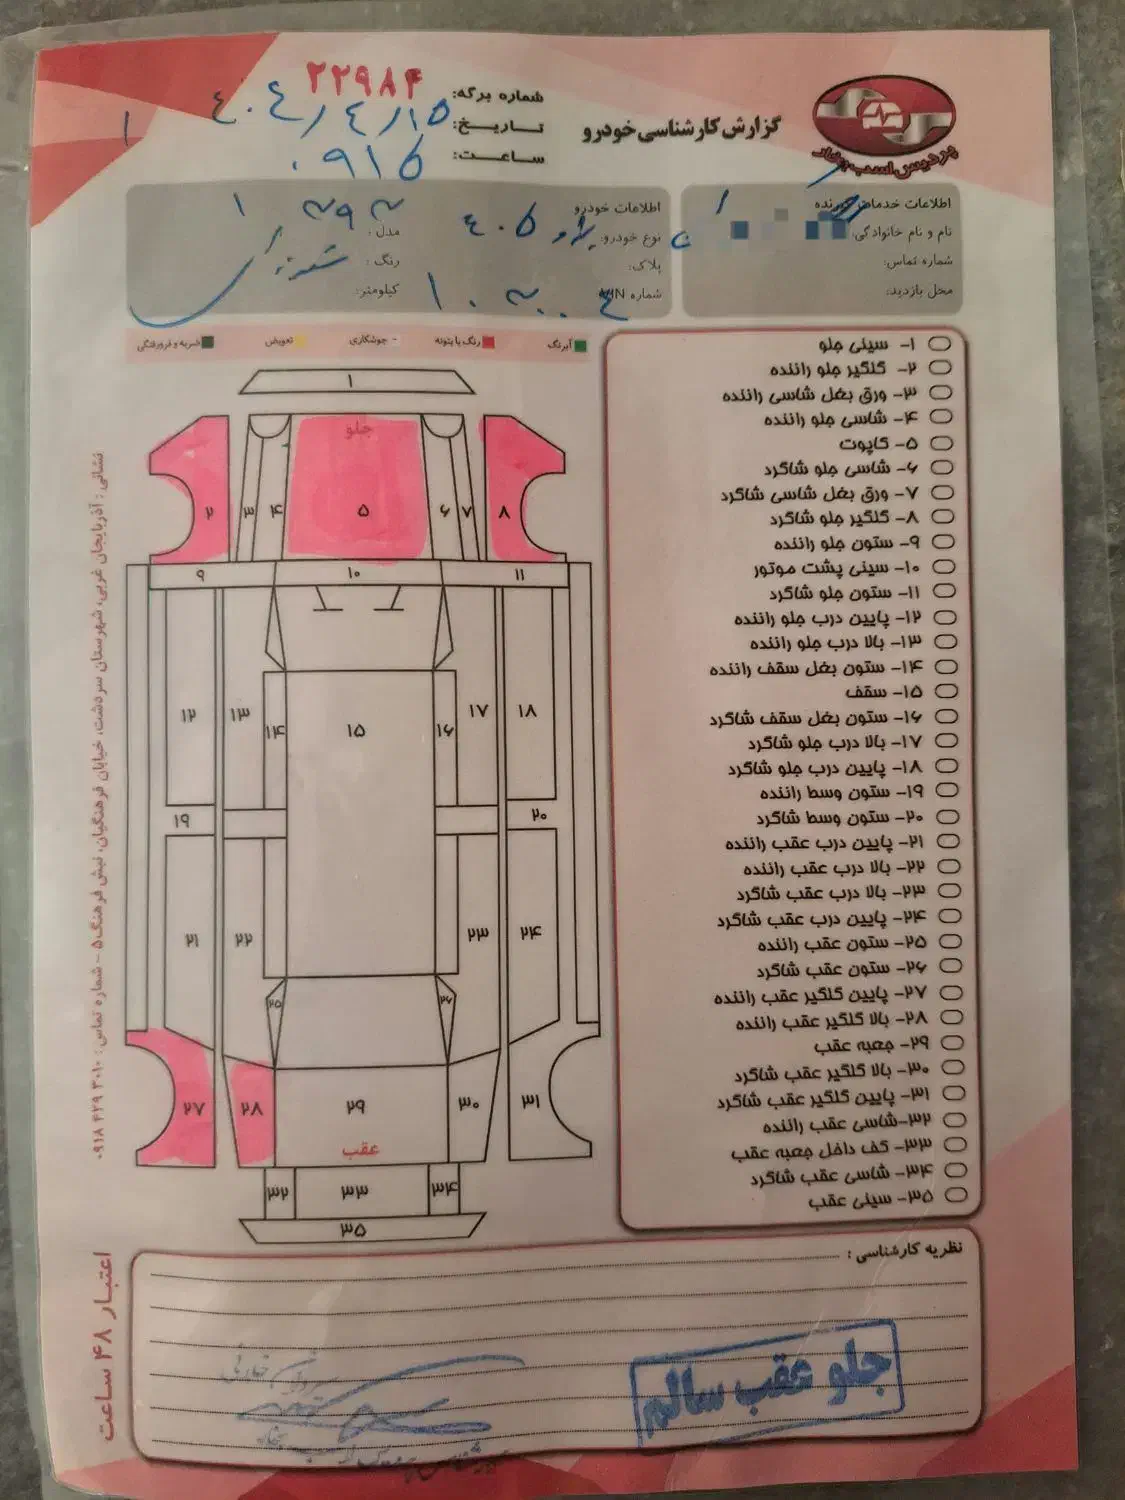 پردیس اسب بخار
گزارش کارشناسی خودرو
شماره برگه: ۲۲۹۸۴
تاریخ: ۱۴۰۴/۴/۱۵
ساعت:
اطلاعات خدمات گیرنده
نام و نام خانوادگی:
شماره تماس:
محل بازدید:
اطلاعات خودرو
نوع خودرو: پژو ۴۰۵
پلاک:
شماره VIN:
مدل:
رنگ:
کیلومتر:
آبرنگ
رنگ با بتونه
جوشکاری
تعویض
ضربه و فرورفتگی
۱- سینی جلو
۲- گلگیر جلو راننده
۳- ورق بغل شاسی راننده
۴- شاسی جلو راننده
۵- کاپوت
۶- شاسی جلو شاگرد
۷- ورق بغل شاسی شاگرد
۸- گلگیر جلو شاگرد
۹- ستون جلو راننده
۱۰- سینی پشت موتور
۱۱- ستون جلو شاگرد
۱۲- پایین درب جلو راننده
۱۳- بالا درب جلو راننده
۱۴- ستون بغل سقف راننده
۱۵- سقف
۱۶- ستون بغل سقف شاگرد
۱۷- بالا درب جلو شاگرد
۱۸- پایین درب جلو شاگرد
۱۹- ستون وسط راننده
۲۰- ستون وسط شاگرد
۲۱- پایین درب عقب راننده
۲۲- بالا درب عقب راننده
۲۳- بالا درب عقب شاگرد
۲۴- پایین درب عقب شاگرد
۲۵- ستون عقب راننده
۲۶- ستون عقب شاگرد
۲۷- پایین گلگیر عقب راننده
۲۸- بالا گلگیر عقب راننده
۲۹- جعبه عقب
۳۰- بالا گلگیر عقب شاگرد
۳۱- پایین گلگیر عقب شاگرد
۳۲- شاسی عقب راننده
۳۳- کف داخل جعبه عقب
۳۴- شاسی عقب شاگرد
۳۵- سینی عقب
۱
جلو
۲ ۳ ۴ ۵ ۶ ۷ ۸
۹ ۱۰ ۱۱
۱۲ ۱۳ ۱۴ ۱۵ ۱۶ ۱۷ ۱۸
۱۹ ۲۰
۲۱ ۲۲ ۲۳ ۲۴
۲۵ ۲۶
۲۷ ۲۸ ۲۹ ۳۰ ۳۱
عقب
۳۲ ۳۳ ۳۴
۳۵
نشانی: آذربایجان غربی، شهرستان سردشت، خیابان فرهنگیان، نبش فرهنگ ۵ - شماره تماس: ۰۹۱۸ ۴۲۹ ۳۰۱۰
اعتبار ۴۸ ساعت
نظریه کارشناسی:
جلو عقب سالم